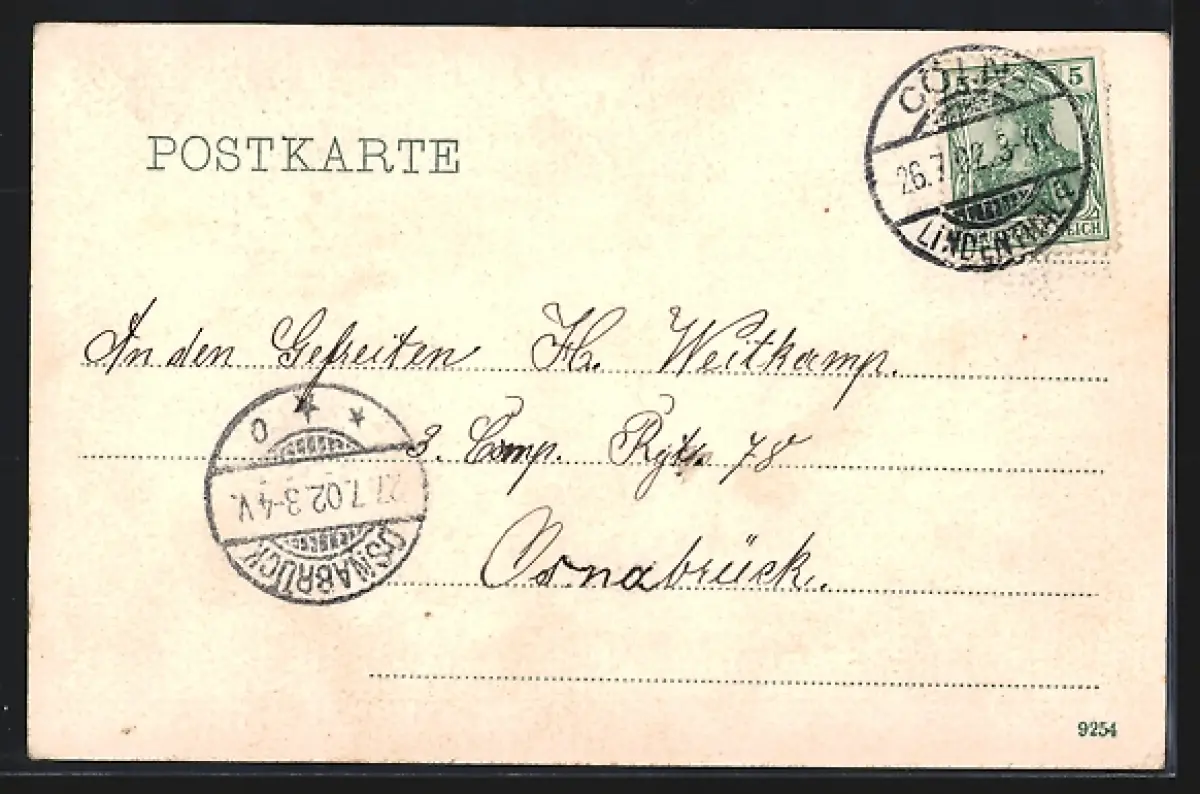 POSTKARTE
CÖLN
5 5
26.7.02.3-4
LINDENTHAL
a
REICH
An den Gefreiten H. Weitkamp.
3. Comp. Rgt. 78
Osnabrück.
OSNABRÜCK
27.7.02.3-4V.
* * o
9254